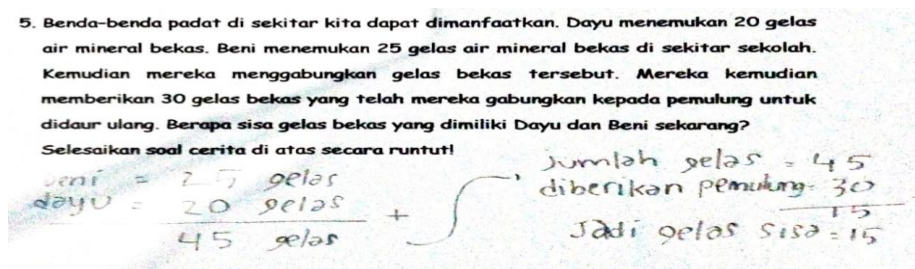 5. Benda-benda padat di sekitar kita dapat dimanfaatkan. Dayu menemukan 20 gelas
air mineral bekas. Beni menemukan 25 gelas air mineral bekas di sekitar sekolah.
Kemudian mereka menggabungkan gelas bekas tersebut. Mereka kemudian
memberikan 30 gelas bekas yang telah mereka gabungkan kepada pemulung untuk
didaur ulang. Berapa sisa gelas bekas yang dimiliki Dayu dan Beni sekarang?
Selesaikan soal cerita di atas secara runtut!
beni = 25 gelas
dayu = 20 gelas +
45 gelas
Jumlah gelas = 45
diberikan pemulung = 30
15
Jadi gelas sisa = 15